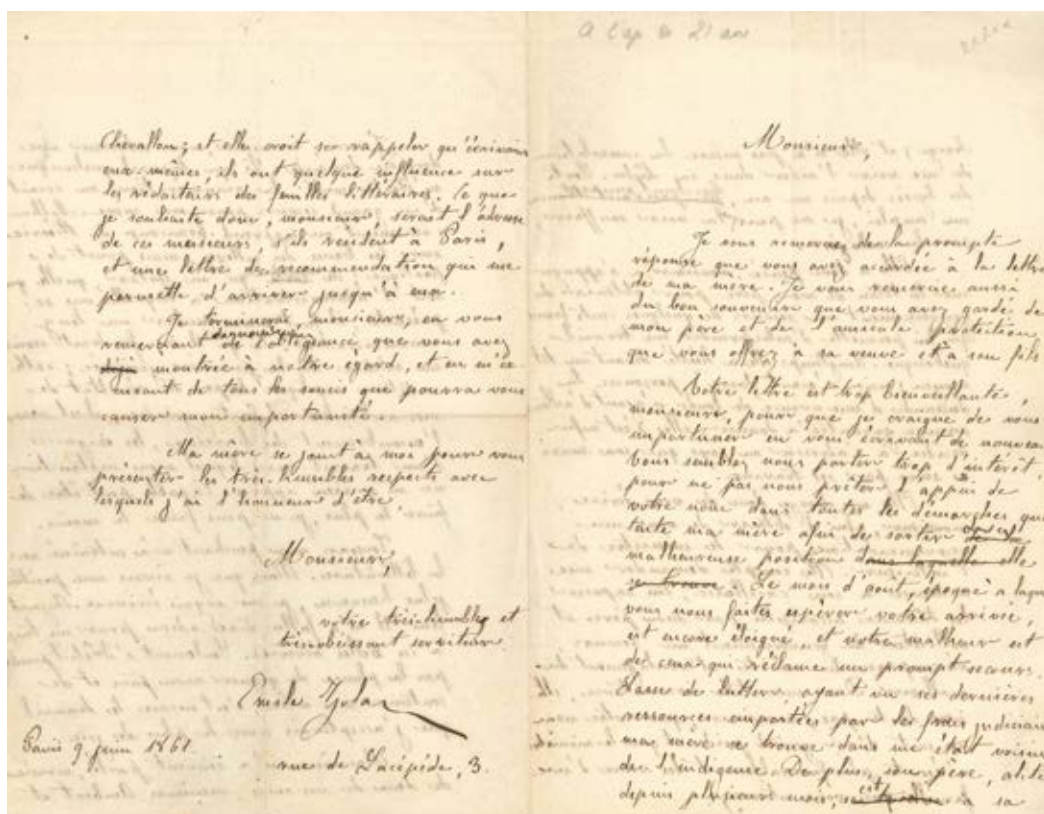 Chevallon; et elle croit se rappeler qu'écrivains
eux-mêmes, ils ont quelque influence sur
les rédacteurs des feuilles littéraires. Ce que
je souhaite donc, monsieur, serait l'adresse
de ces messieurs, s'ils résident à Paris,
et une lettre de recommendation qui me
permette d'arriver jusqu'à eux.
Je terminerai, monsieur, en vous
remerciant de l'obligeance que vous avez
déjà montrée à notre égard, et en m'ex
cusant de tous les soucis que pourra vous
causer mon importunité.
Ma mère se joint à moi pour vous
présenter les très-humbles respects avec
lesquels j'ai l'honneur d'être,
Monsieur,
votre très-humble et
très obéissant serviteur.
Emile Zola
Paris 9 juin 1861
rue de Lacépède, 3.
A l'age de 21 ans
Monsieur,
Je vous remercie de la prompte
réponse que vous avez accordée à la lettre
de ma mère. Je vous remercie aussi
du bon souvenir que vous avez gardé de
mon père et de l'amicale protection
que vous offrez à sa veuve et à son fils
Votre lettre est trop bienveillante,
monsieur, pour que je craigne de vous
importuner en vous écrivant de nouveau
Vous semblez nous porter trop d'intérêt,
pour ne pas nous prêter l'appui de
votre nom dans toutes les démarches que
tente ma mère afin de sortir
malheureuse position dans laquelle elle
se trouve. Le mois d'aout, époque à laqu
vous nous faites espérer votre arrivée,
est encore éloigné, et notre malheur est
de ceux qui réclame un prompt secours.
Lasse de lutter ayant vu ses dernières
ressources emportées par les frais judiciair
ma mère se trouve dans un état voisin
de l'indigence. De plus, son père, alité
depuis plusieurs mois, est à sa